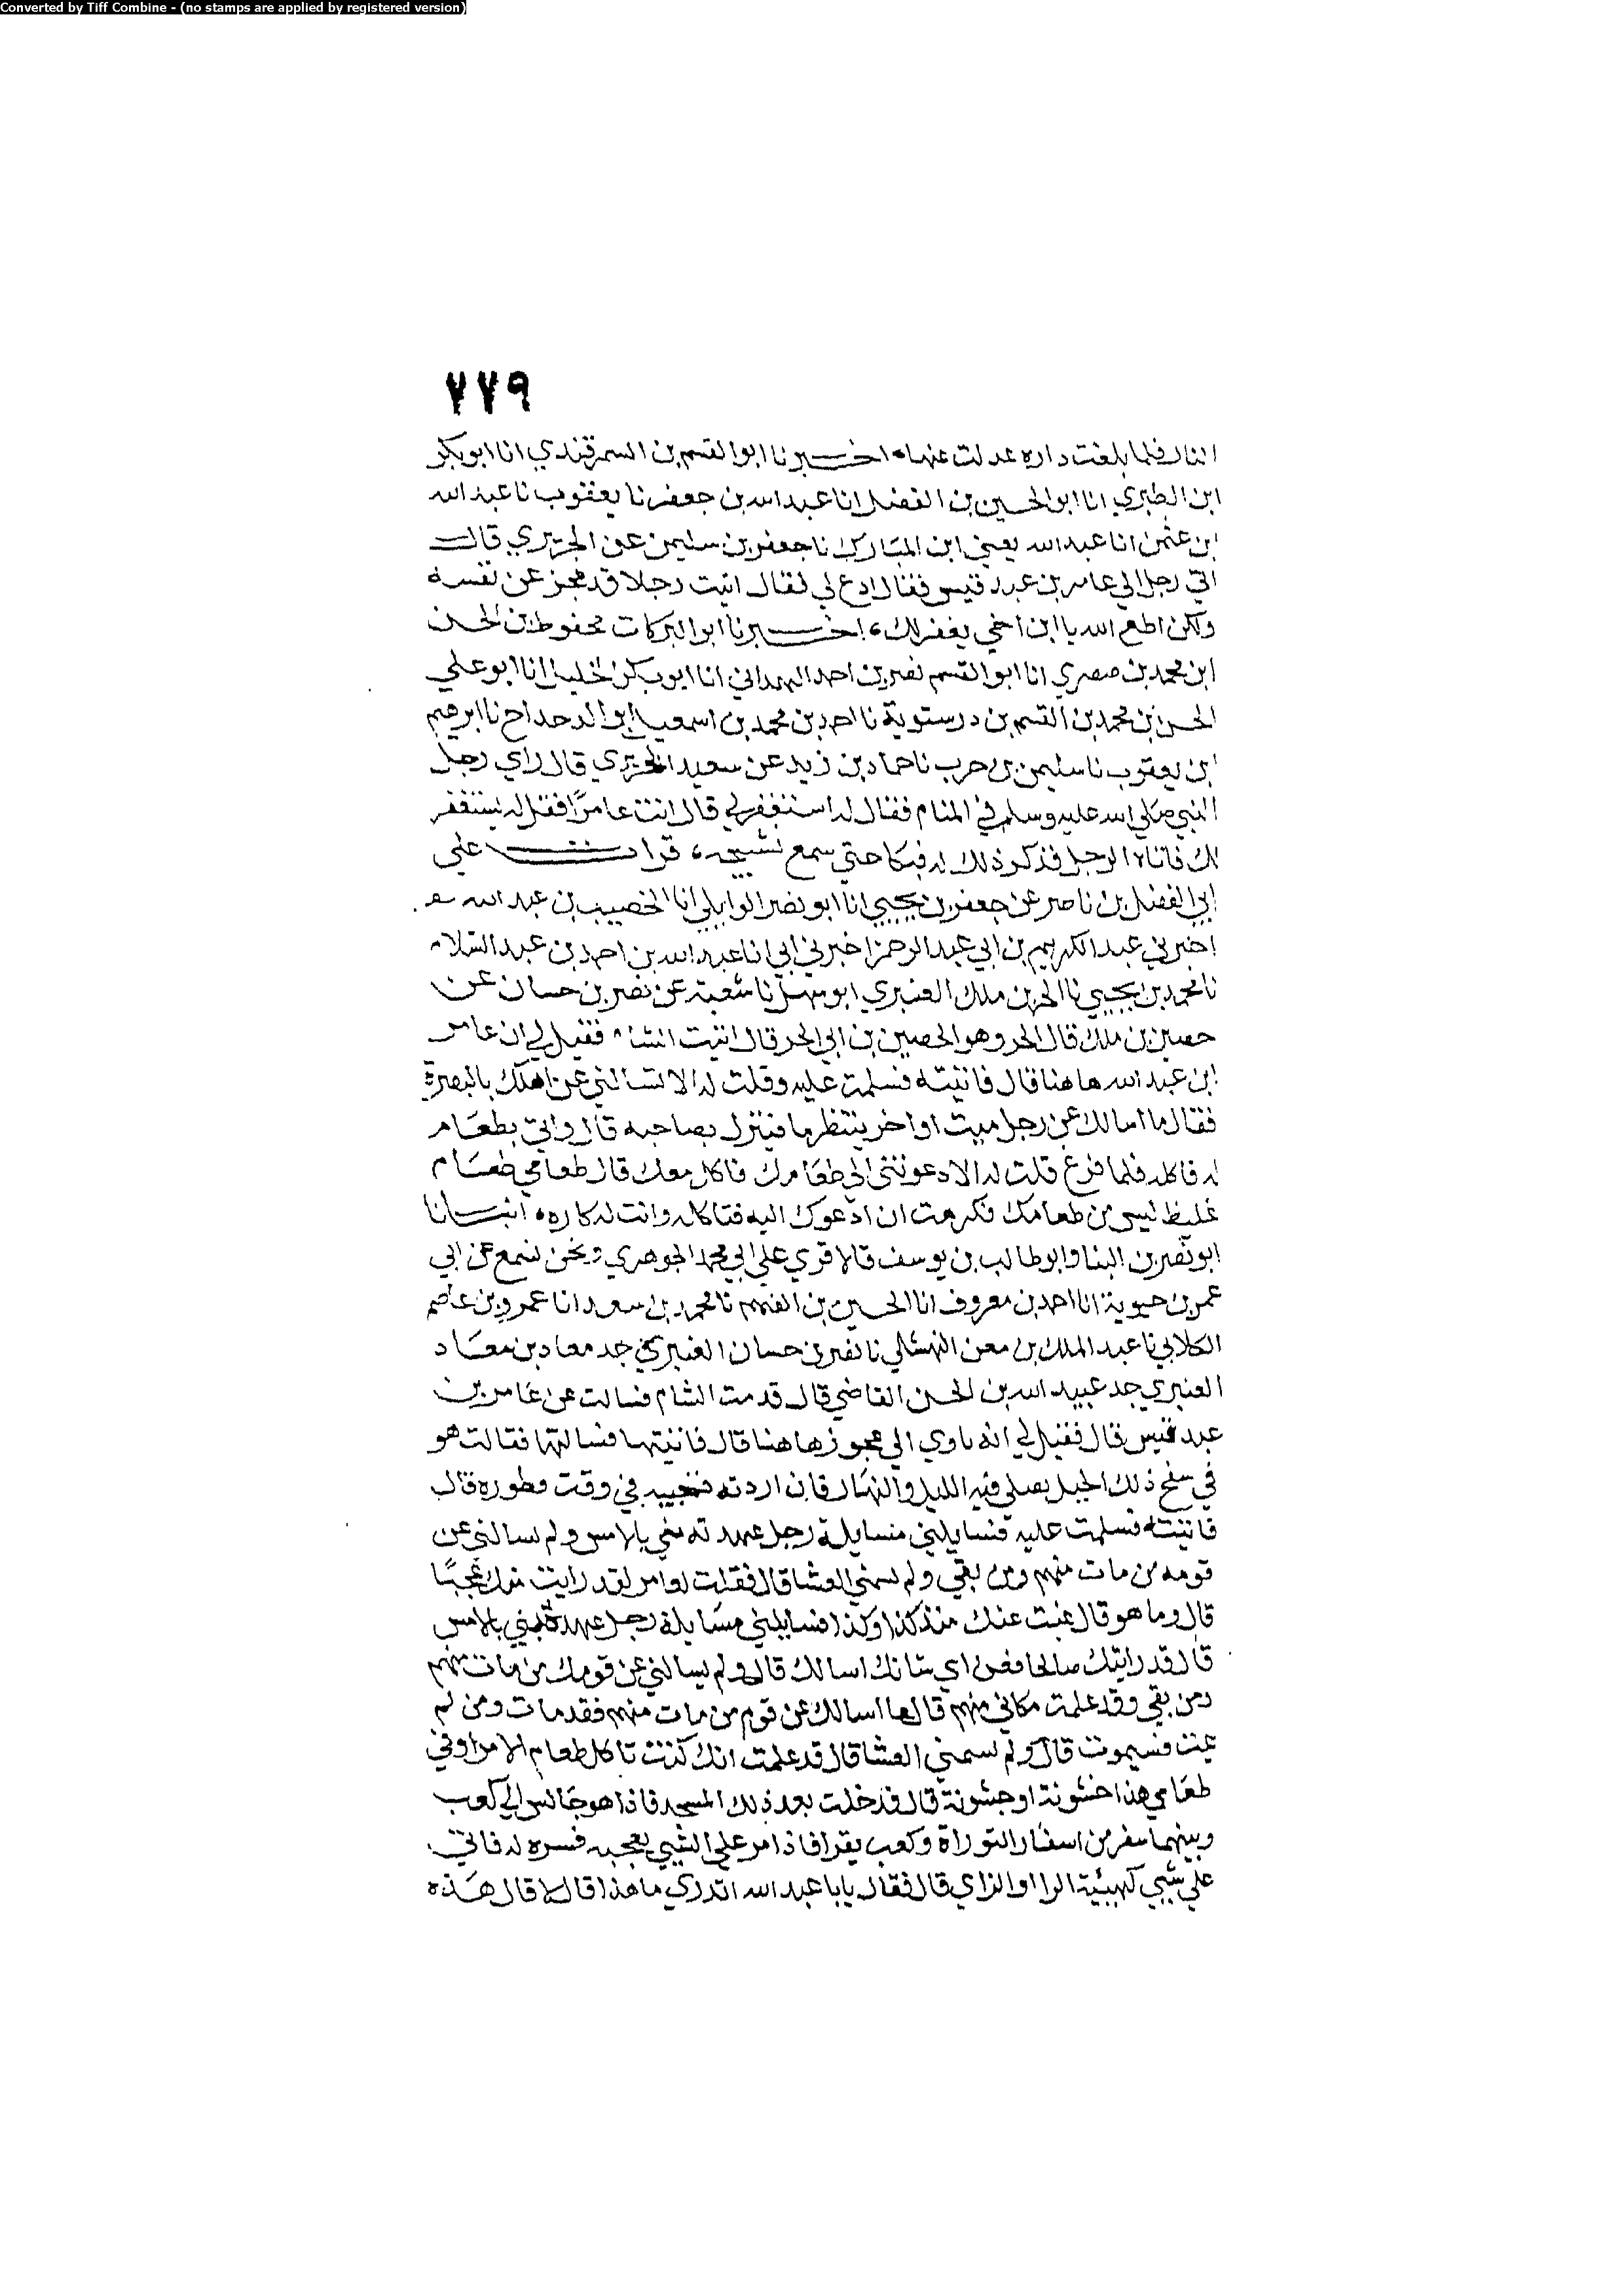 Converted by Tiff Combine - (no stamps are applied by registered version)
٧٧٩
النار فلما بلغت داره عدلت عنها، اخبرنا ابو القسم بن السمرقندي انا ابو بكر
ابن الطبري انا ابو الحسين بن الفضل انا عبد الله بن جعفر نا يعقوب نا عبد الله
ابن عثمن انا عبد الله يعني ابن المبارك نا جعفر بن سليمن عن الجريري قال
اتي رجل الي عامر بن عبد قيس فقال ادع لي فقال اتيت رجلا قد عجز عن نفسه
ولكن اطع الله يا ابن اخي يغفر لك، اخبرنا ابو البركات محفوظ بن الحسن
ابن محمد بن صصري انا ابو القسم نصر بن احمد الهمداني انا ابو بكر الخليل انا ابو علي
الحسن بن محمد بن القسم بن درستوية نا احمد بن محمد بن اسمعيل ابو الدحداح نا ابرهيم
ابن يعقوب نا سليمن بن حرب نا حماد بن زيد عن سعيد الجريري قال راي رجل
النبي صلي الله عليه وسلم في المنام فقال له استغفر لي قال ائت عامرًا فقل له يستغفر
لك فاتاه الرجل فذكر ذلك له فبكا حتي سمع نشيجه، قرات علي
ابي الفضل بن ناصر عن جعفر بن يحيي انا ابو نصر الوايلي انا الخصيب بن عبد الله
اخبرني عبد الكريم بن ابي عبد الرحمن اخبرني ابي انا عبد الله بن احمد بن عبد السلام
نا محمد بن يحيي نا الحر بن ملك العنبري ابو سهل نا شعبة عن نصر بن حسان عن
حصين بن ملك قال الحر وهو الحصين بن ابي الحر قال اتيت الشام فقيل لي ان عامر
ابن عبد الله هاهنا قال فاتيته فسلمت عليه وقلت له الا تسالني عن اهلك بالبصرة
فقال ما اسالك عن رجل ميت او اخر ينتظر ما فينزل بصاحبه قال واتي بطعام
له فاكله فلما فرغ قلت له الا دعوتني الي طعامك فاكل معك قال طعامي طعام
غليظ ليس من طعامك فكرهت ان ادعوك اليه فتاكله وانت له كاره، انبانا
ابو نصر بن البنا وابو طالب بن يوسف قالا قري علي ابي محمد الجوهري ونحن نسمع عن ابي
عمر بن حيوية انا احمد بن معروف انا الحسين بن الفهم نا محمد بن سعد انا عمرو بن عاصم
الكلابي نا عبد الملك بن معن النهشلي نا نصر بن حسان العنبري جد معاد بن معاد
العنبري جد عبيد الله بن الحسن القاضي قال قدمت الشام فسالت عن عامر بن
عبد قيس قال فقيل لي انه ياوي الي عجوز هاهنا قال فاتيتها فسالتها فقالت هو
في سفح ذلك الجبل يصلي فيه الليل والنهار فان اردته في وقت فطوره قال
فاتيته فسلمت عليه فسايلني مسايلة رجل عهدته مني بالامس ولم يسالني عن
قومه من مات منهم ومن بقي ولم يسمني العشا قال فقلت لعامر لقد رايت منك عجبًا
قال وما هو قال غبت عنك منذ كذا وكذا فسايلني مسايلة رجل عهده بالامس
قال قد رايتك صالحا فعن اي شانك اسالك قال ولم يسالني عن قومك من مات منهم
ومن بقي وقد علمت مكاني منهم قال ما اسالك عن قوم من مات منهم فقد مات ومن لم
يمت فسيموت قال ولم يسمني العشا قال قد علمت انك كنت تاكل طعام الامرا وفي
طعامي هذا خشونة او جشونة قال فدخلت بعد ذلك المسجد فاذا هو جالس الي كعب
وبينهما سفر من اسفار التوراة وكعب يقرا فاذا مر علي الشي يعجبه فسره له فاتي
علي شي كهيئة الرا او الزاي قال فقال يابا عبد الله اتدري ما هذا قال لا قال هذه